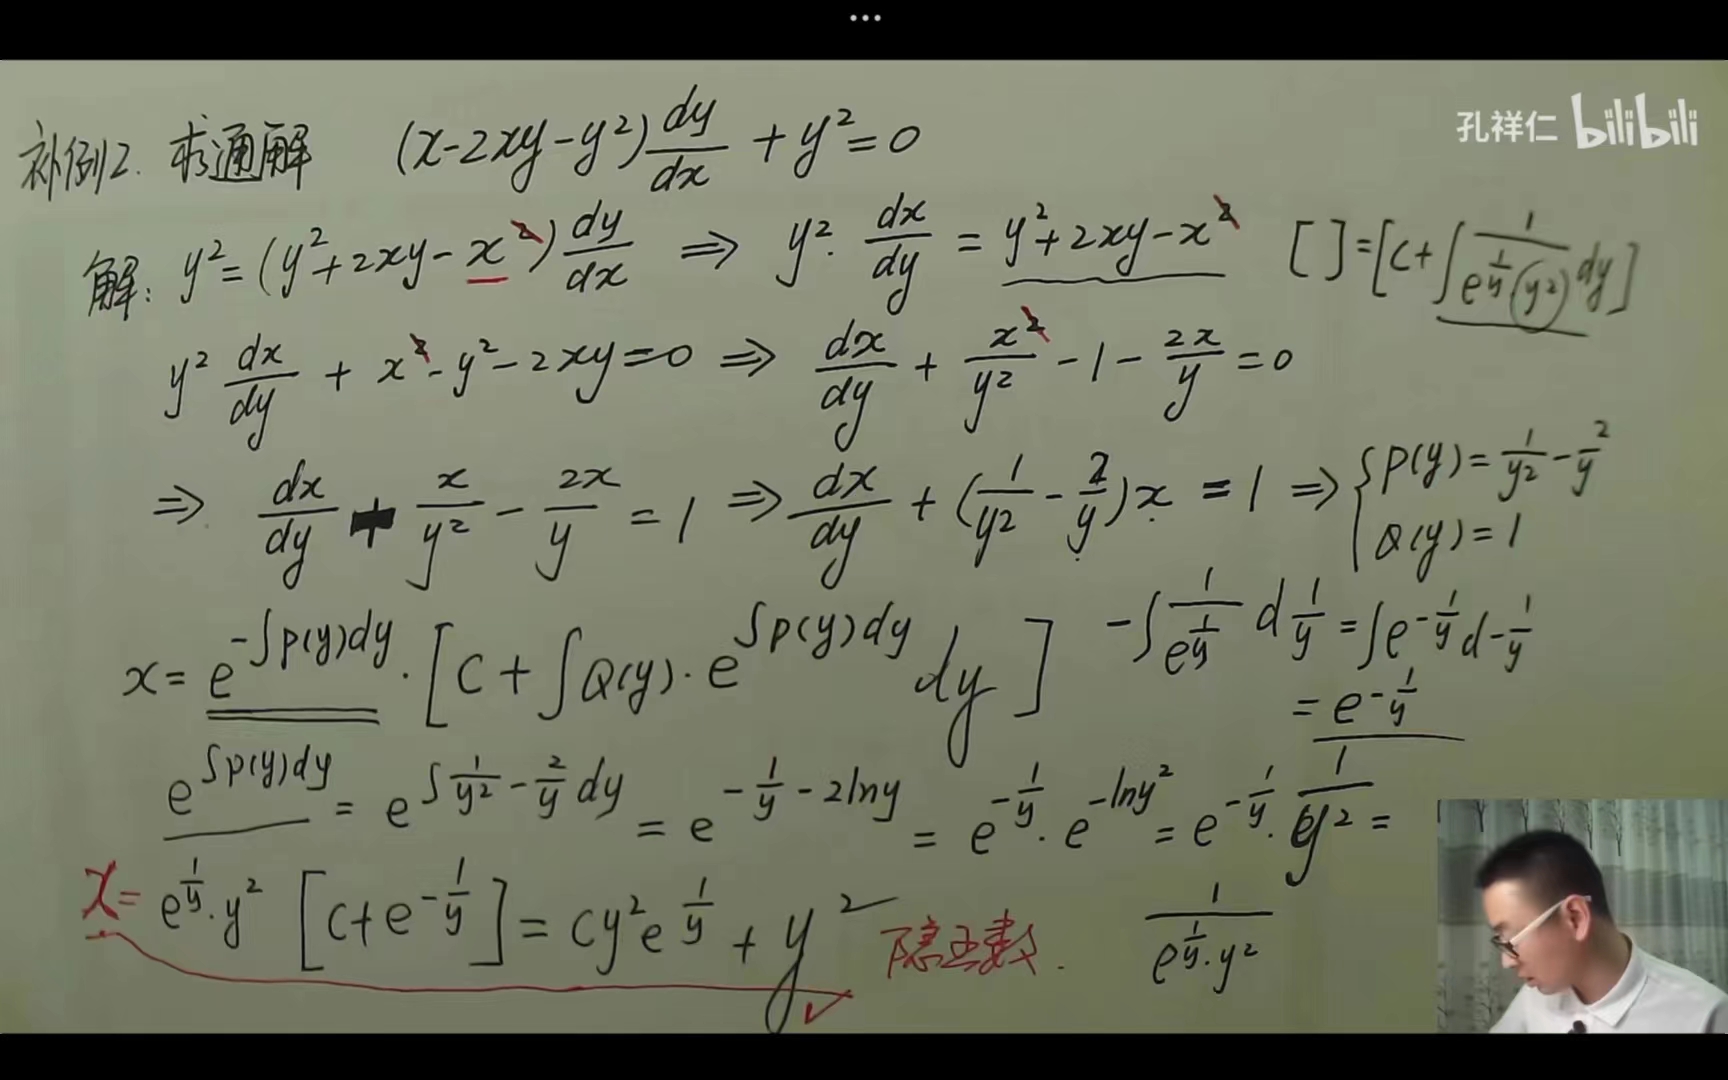 ...
孔祥仁 bilibili
补例2. 求通解 (x-2xy-y²)dy/dx + y² = 0
解: y² = (y²+2xy-x²)dy/dx ⇒ y²·dx/dy = y²+2xy-x² [ ] = [C+∫1/(e^(1/y)(y²))dy]
y² dx/dy + x²-y²-2xy=0 ⇒ dx/dy + x²/y² - 1 - 2x/y = 0
⇒ dx/dy + x/y² - 2x/y = 1 ⇒ dx/dy + (1/y² - 2/y)x = 1 ⇒ { P(y) = 1/y² - 2/y
Q(y) = 1
x = e^(-∫P(y)dy)·[C+∫Q(y)·e^(∫P(y)dy)dy] -∫1/e^(1/y) d 1/y = ∫e^(-1/y) d -1/y
= e^(-1/y)
e^(∫P(y)dy) = e^(∫1/y² - 2/y dy) = e^(-1/y - 2lny) = e^(-1/y)·e^(-lny²) = e^(-1/y)·1/y² =
x = e^(1/y)·y² [C+e^(-1/y)] = Cy²e^(1/y) + y² 隐函数. 1/(e^(1/y)·y²)